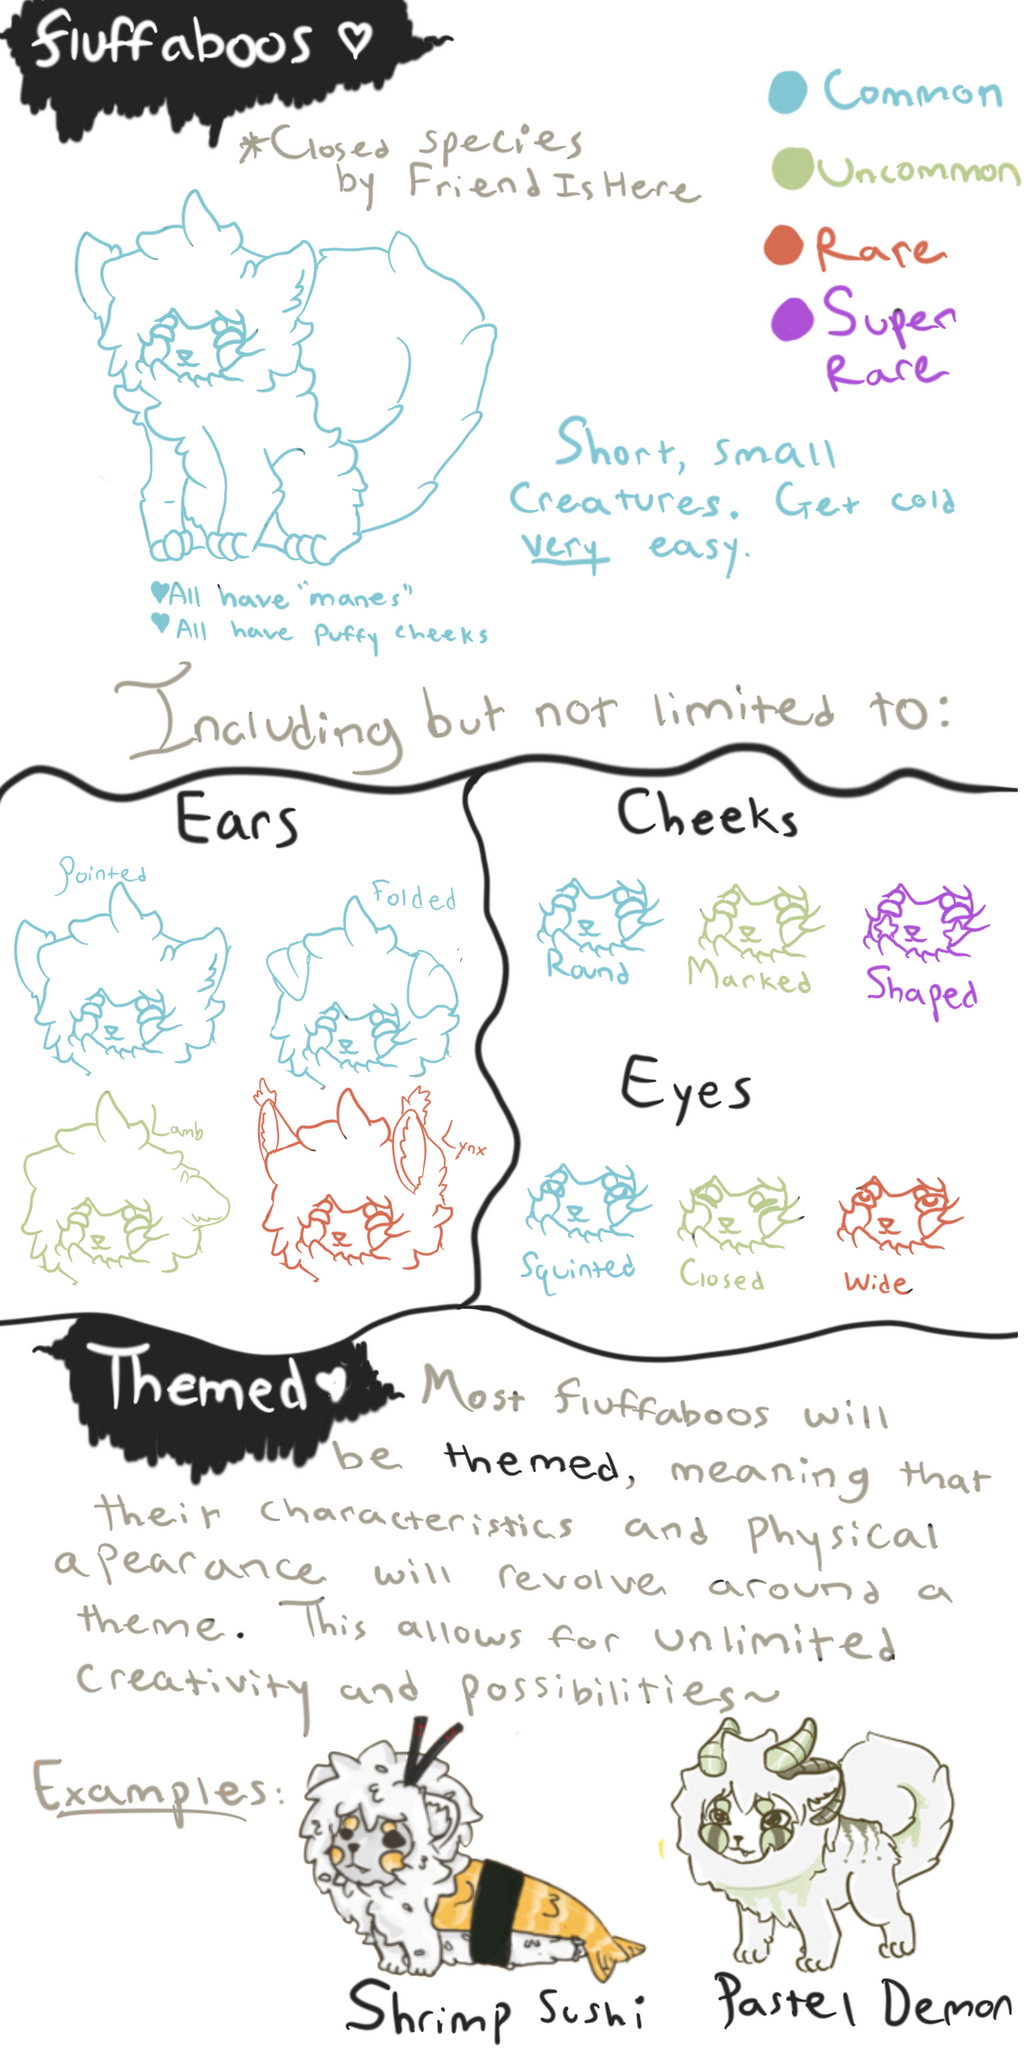 fluffaboos ♥
Common
*Closed species
by FriendIsHere
Uncommon
Rare
Super
Rare
Short, small
creatures. Get cold
very easy.
♥All have "manes"
♥All have puffy cheeks
Including but not limited to:
Ears
Pointed
Folded
Lamb
Lynx
Cheeks
Round
Marked
Shaped
Eyes
Squinted
Closed
Wide
Themed ♥
Most fluffaboos will
be themed, meaning that
their characteristics and physical
apearance will revolve around a
theme. This allows for unlimited
creativity and possibilities~
Examples:
Shrimp Sushi
Pastel Demon